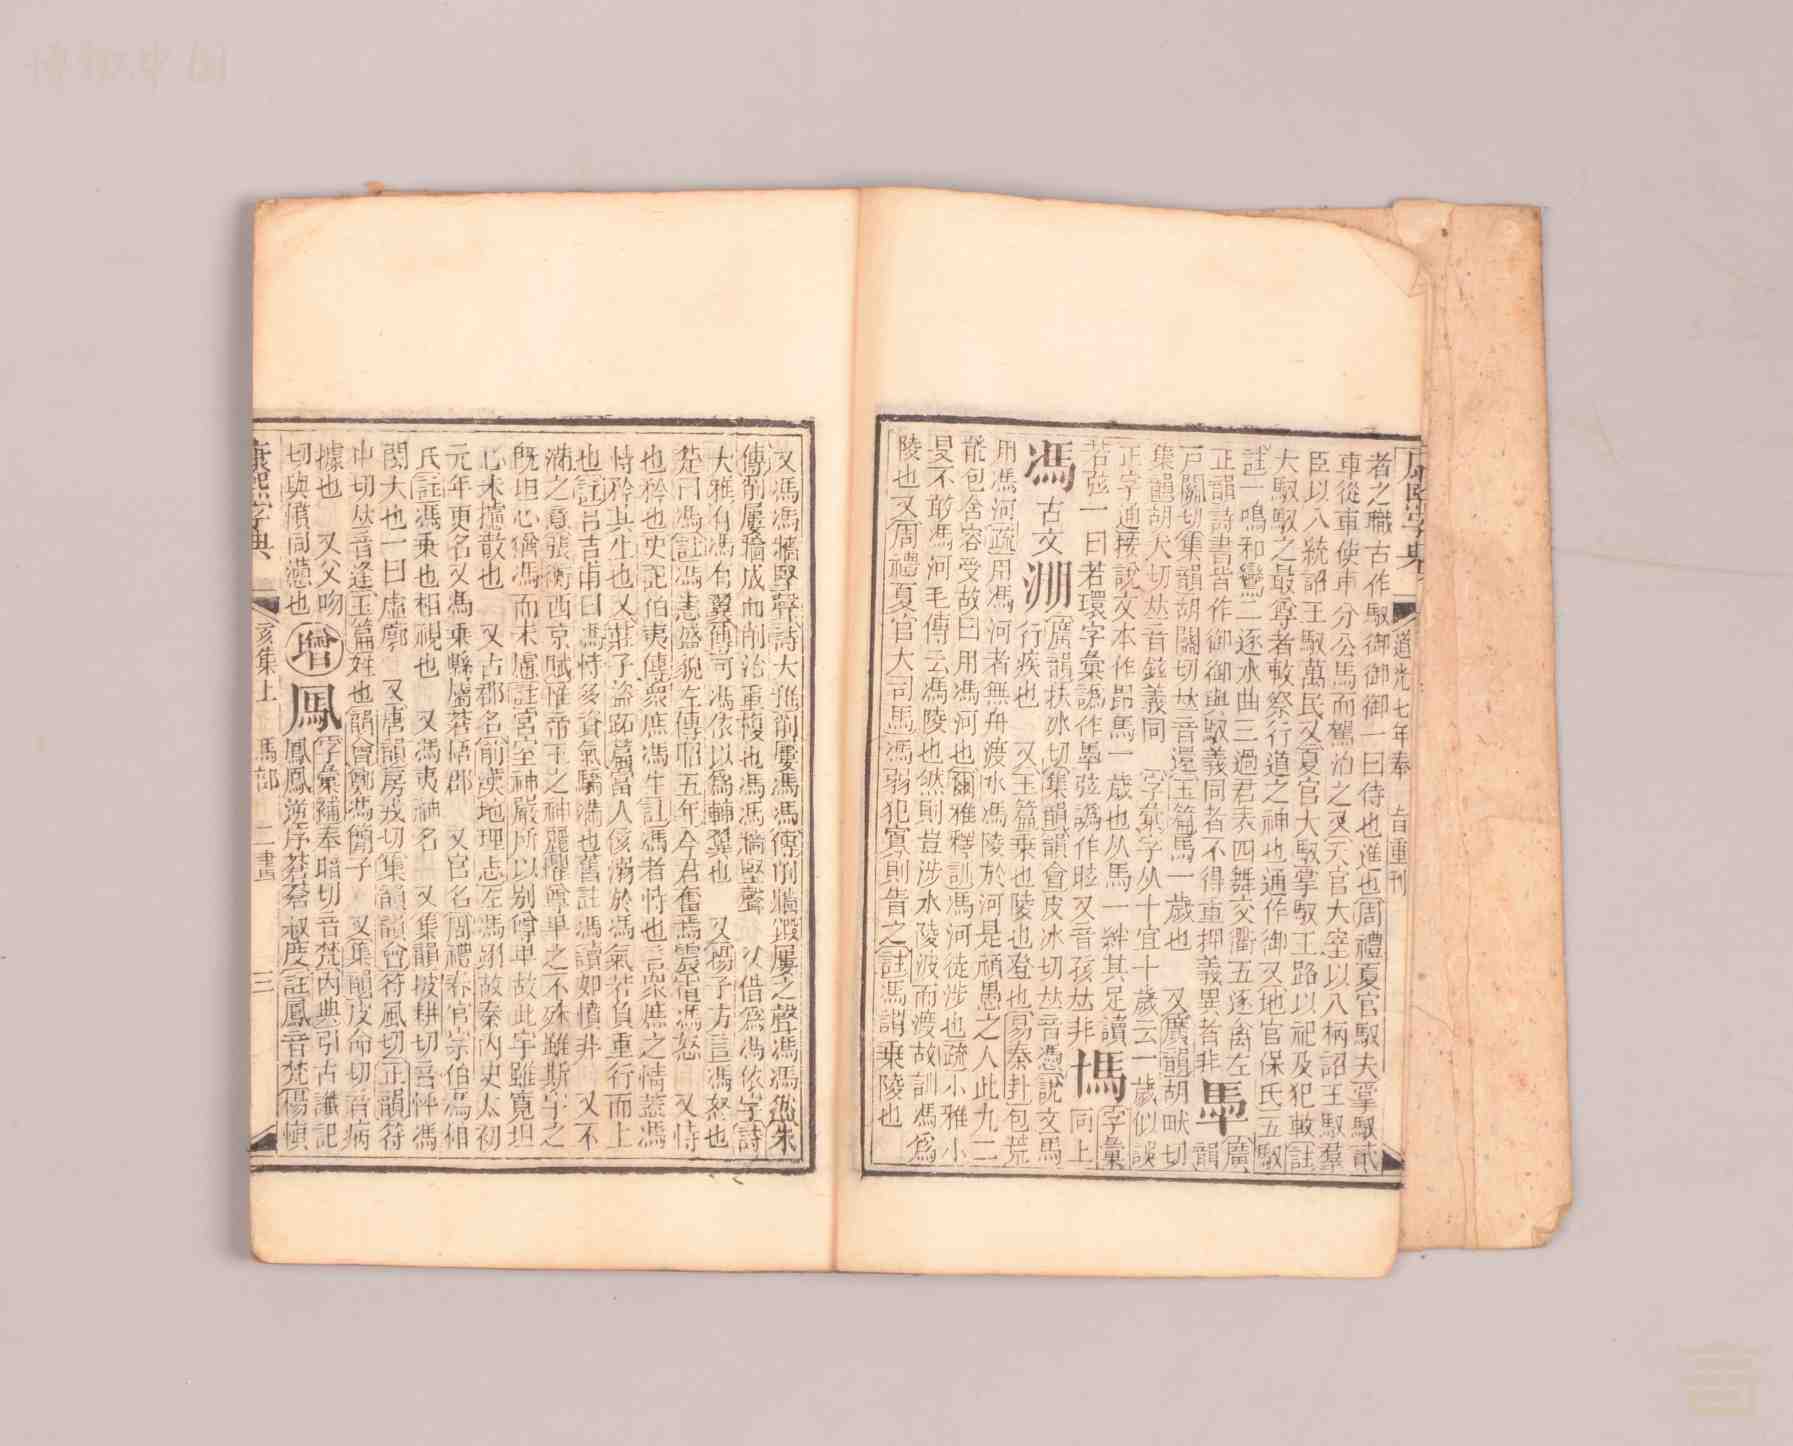 康熙字典 道光七年奉 旨重刊
者之職古作馭御御御一曰侍也進也周禮夏官馭夫掌馭貳
車從車使車分公馬而駕治之又天官大宰以八柄詔王馭羣
臣以八統詔王馭萬民又夏官大馭掌馭王路以祀及犯軷註
大馭馭之最尊者軷祭行道之神也通作御又地官保氏五馭
註一鳴和鸞二逐水曲三過君表四舞交衢五逐禽左
正韻詩書皆作御御與馭義同者不得重押義異者非 廣韻
戶關切集韻胡關切𠀤音還玉篇馬一歲也 又廣韻胡畎切
集韻胡犬切𠀤音鉉義同 字彙字从十宜十歲云一歲似誤
正字通接說文本作馬一歲也从馬一絆其足讀
若弦一曰若環字彙譌作弦譌作眩又音孩𠀤非 字彙同上
馮 古文淜 廣韻扶冰切集韻韻會皮冰切𠀤音憑說文馬
行疾也 又玉篇乘也陵也登也易泰卦包荒
用馮河疏用馮河者無舟渡水馮陵於河是頑愚之人此九二
能包含容受故曰用馮河也爾雅釋訓馮河徒涉也疏小雅小
旻不敢馮河毛傳云馮陵也然則豈涉水陵波而渡故訓馮爲
陵也又周禮夏官大司馬馮弱犯寡則眚之註馮謂乘陵也
又馮馮牆堅聲詩大雅削屢馮馮傳削牆鍛屢之聲馮馮然朱
傳削屢牆成而削治重複也馮馮牆堅聲 又借爲馮依字詩
大雅有馮有翼傳可馮依以爲輔翼也 又揚子方言馮怒也
楚曰馮註馮恚盛貌左傳昭五年今君奮焉震電馮怒 又恃
也矜也史記伯夷傳衆庶馮生註馮者恃也言衆庶之情蓋馮
恃矜其生也又莊子盜跖篇富人侅溺於馮氣若負重行而上
也註呂吉甫曰馮恃多資氣驕滿也舊註馮讀如憤非 又不
滿之意張衡西京賦惟帝王之神麗懼尊卑之不殊雖斯宇之
旣坦心猶馮而未攄註宮室神嚴所以別尊卑故此宇雖寬坦
心未攄散也 又古郡名前漢地理志左馮翊故秦內史太初
元年更名又馮乘縣屬蒼梧郡 又官名周禮春官宗伯馮相
氏註馮乘也相視也 又馮夷神名 又集韻披耕切音怦馮
閎大也一曰虛廓 又唐韻房戎切集韻韻會符風切正韻符
中切𠀤音逢玉篇姓也韻會鄭馮簡子 又集韻皮命切音病
據也 又父吻
切與憤同懣也 增 鳳 字彙補奉聙切音梵內典引古讖記
鳳鳳逆序若蒼叔度註鳳音梵楊慎
康熙字典 亥集上 馬部 二畫 三